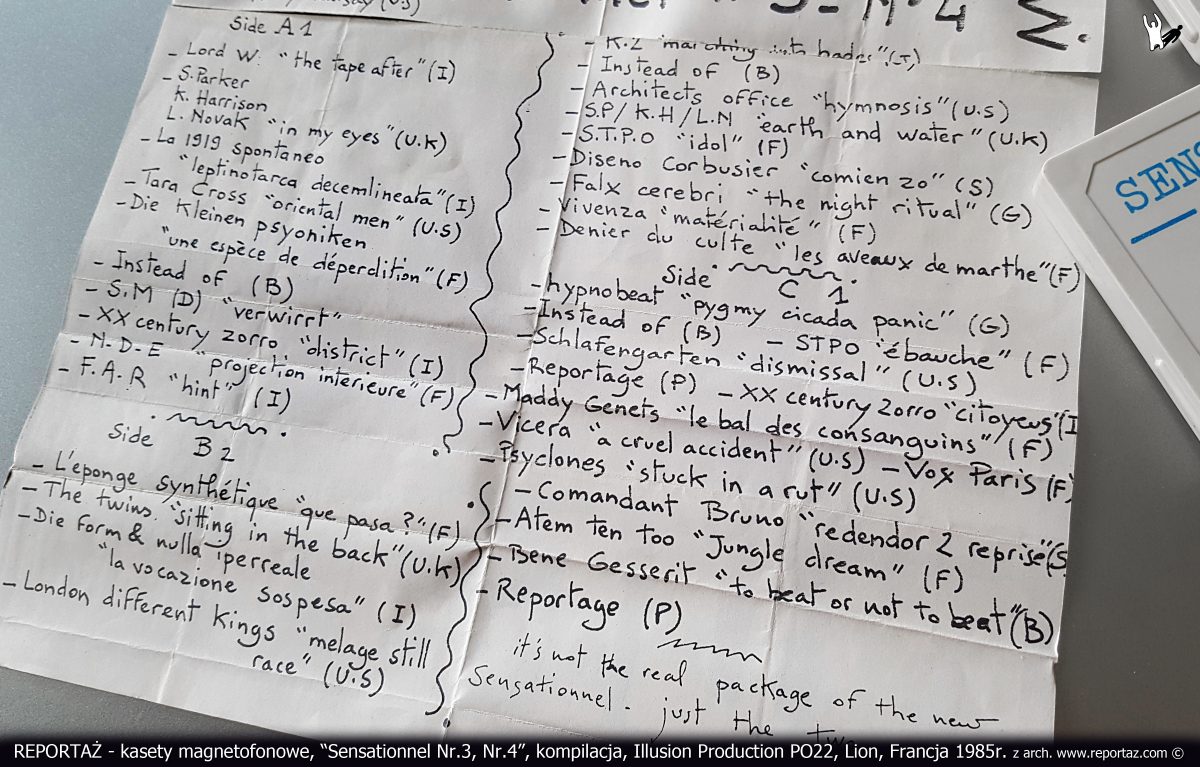 (U.S)
Side A 1
- Lord W. "the tape after" (I)
- S.Parker
K. Harrison
L. Novak "in my eyes" (U.K)
- La 1919 spontaneo
"leptinotarca decemlineata" (I)
- Tara Cross "oriental men" (U.S)
- Die Kleinen psyoniken
"une espèce de déperdition" (F)
- Instead of (B)
- S.M (D) "verwirrt"
- XX century zorro "district" (I)
- N.D.E "projection intérieure" (F)
- F.A.R "hint" (I)
Side B 2
- L'eponge synthétique "que pasa?" (F)
- The twins. "sitting in the back" (U.K)
- Die form & nulla iperreale
"la vocazione sospesa" (I)
- London different Kings "melage still
race" (U.S)
4 Σ.
- K.Z "marching into hades" (I)
- Instead of (B)
- Architects office "hymnosis" (U.S)
- S.P/K.H/L.N "earth and water" (U.K)
- S.T.P.O "idol" (F)
- Diseno Corbusier "comien zo" (S)
- Falx cerebri "the night ritual" (G)
- Vivenza "matérialité" (F)
- Denier du culte "les aveaux de marthe" (F)
Side C 1
- hypnobeat "pygmy cicada panic" (G)
- Instead of (B) - STPO "ébauche" (F)
- Schlafengarten "dismissal" (U.S)
- Reportage (P) - XX century zorro "citoyens" (I
- Maddy Genets "le bal des consanguins" (F)
- Vicera "a cruel accident" (U.S) - Vox Paris (F)
- Psyclones "stuck in a rut" (U.S)
- Comandant Bruno "redendor 2 reprise" (S
- Atem ten too "Jungle dream" (F)
- Bene Gesserit "to beat or not to beat" (B)
- Reportage (P)
it's not the real package of the new
Sensationnel. just the
SENS
REPORTAŻ - kasety magnetofonowe, "Sensationnel Nr.3, Nr.4", kompilacja, Illusion Production PO22, Lion, Francja 1985r. z arch. www.reportaz.com ©